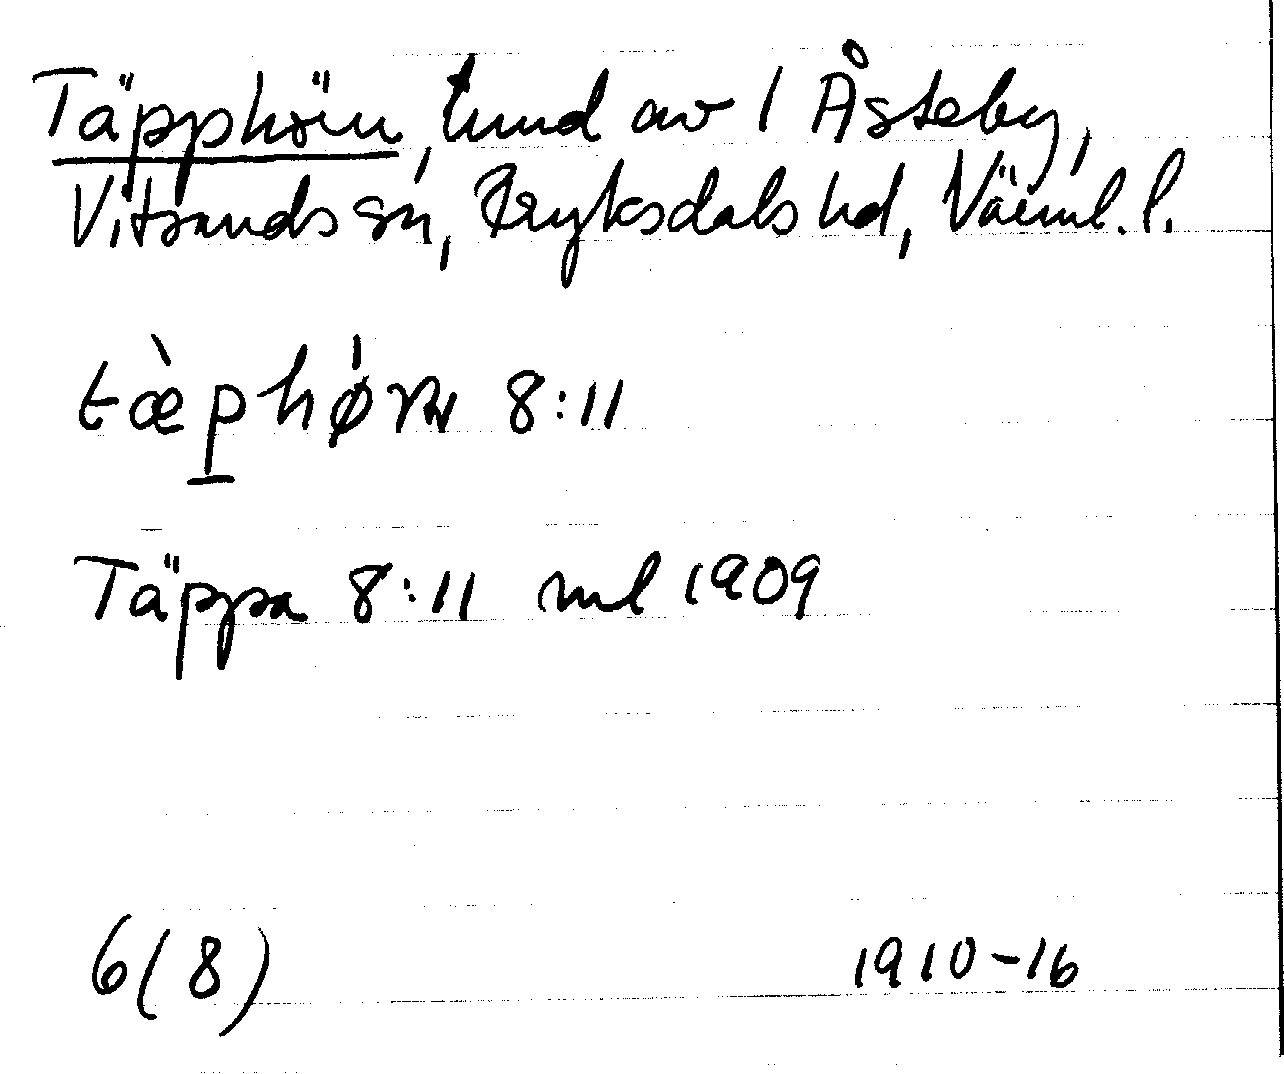 Täpphörn, hmd av 1 Åsteby,
Vitsands sn, Fryksdals hd, Värml. l.
8:11
Täppa 8:11 ml 1909
6(8) 1910-16